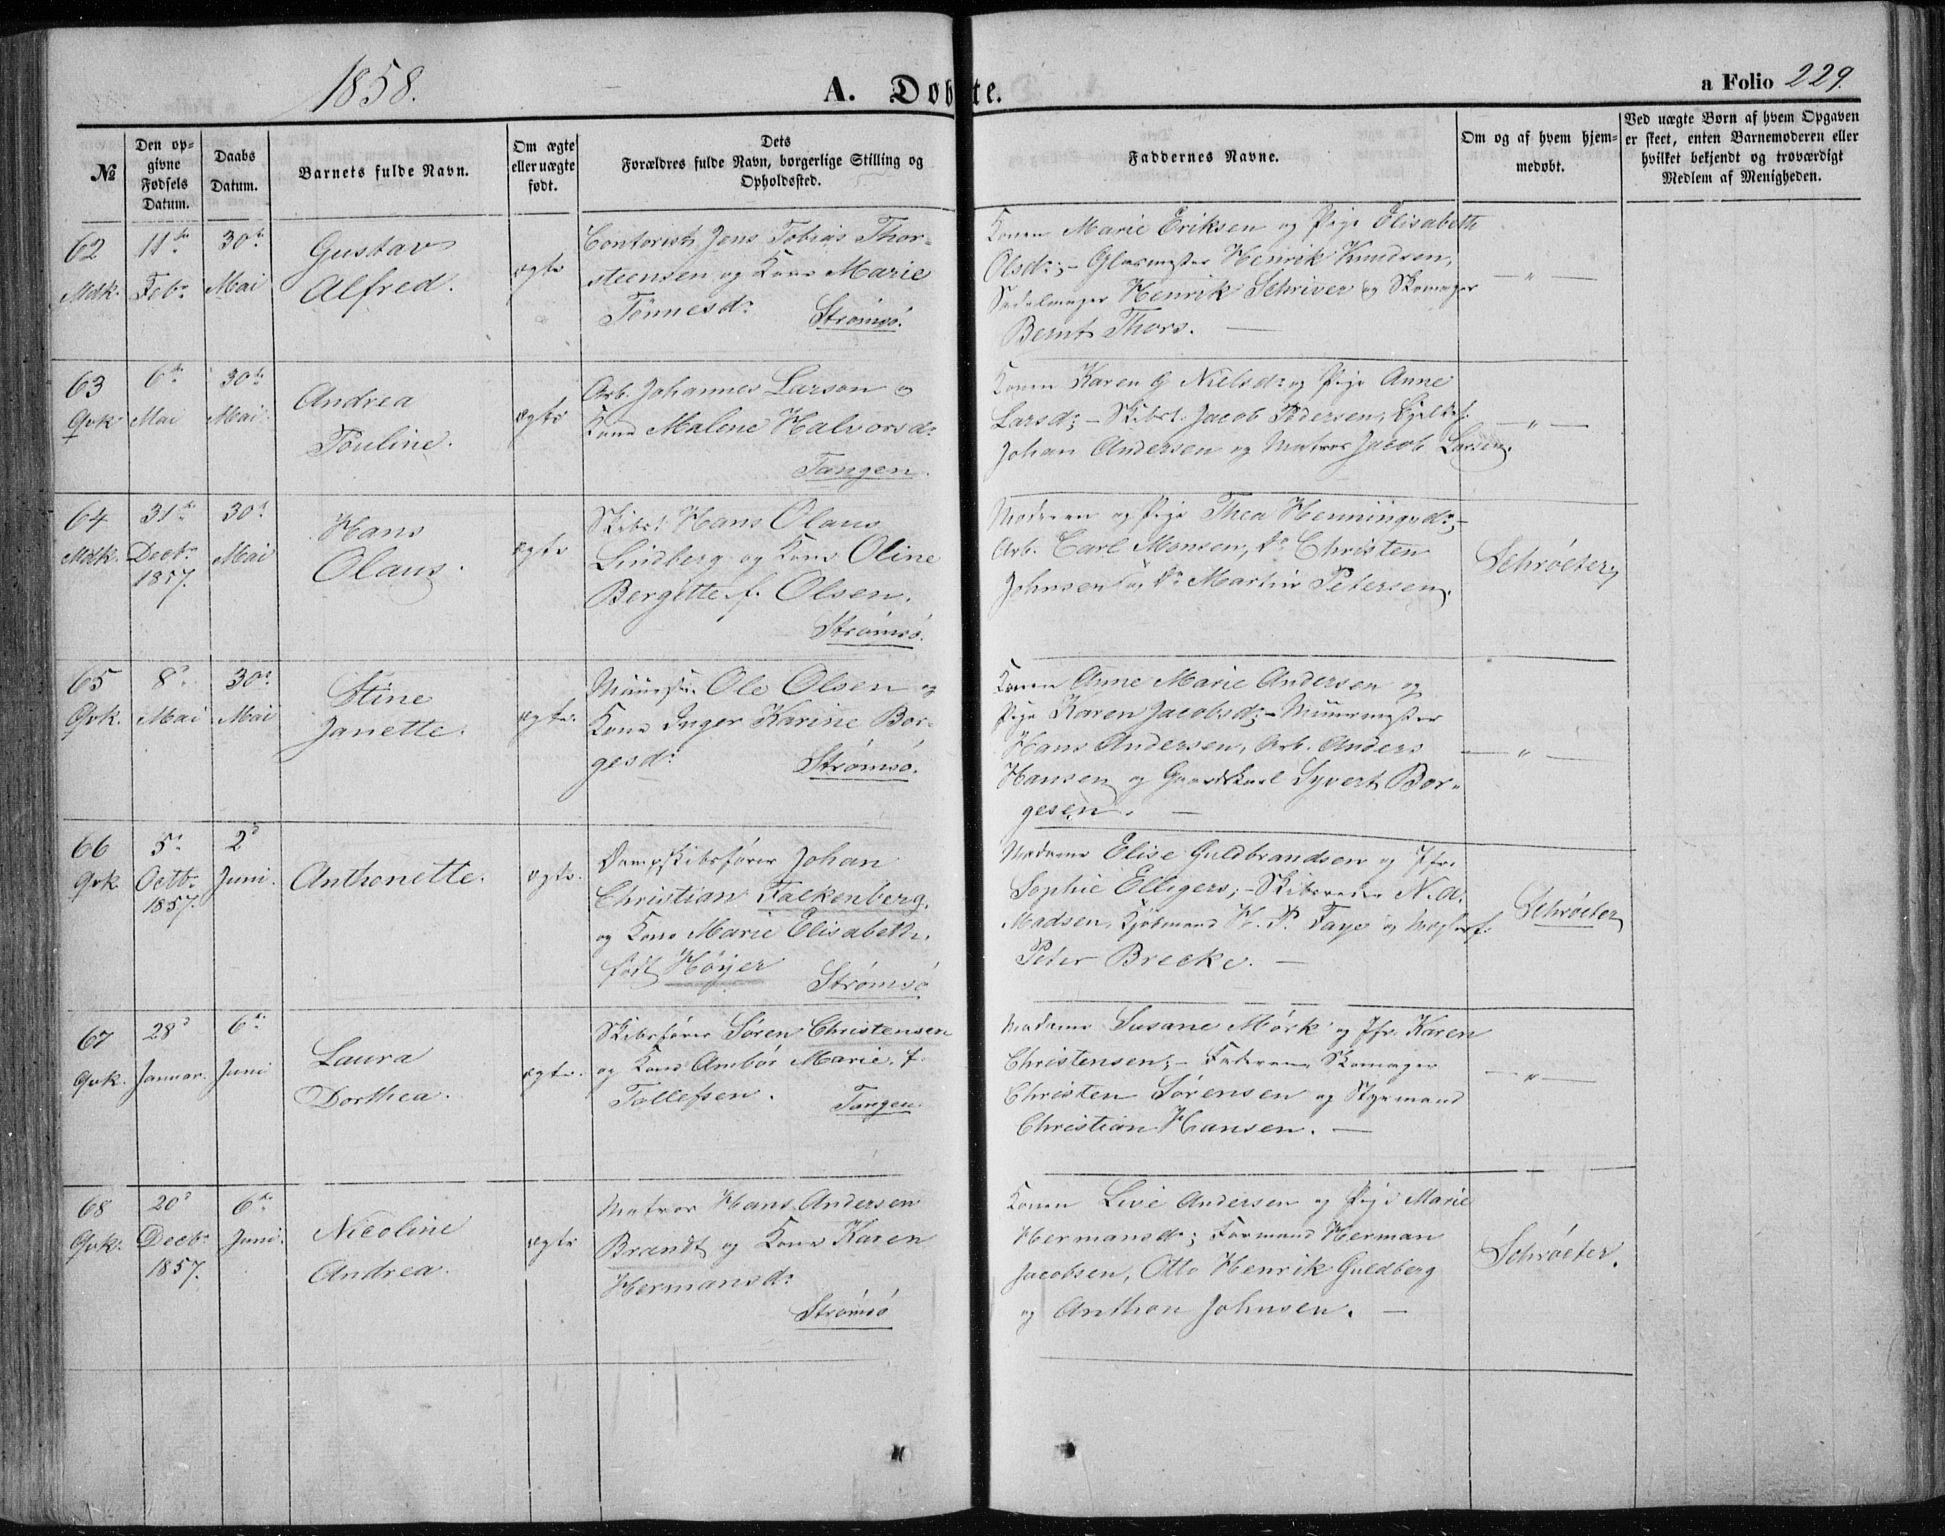 1858.
A. Døbte.
a Folio 229.
№
Den opgivne Fødsels Datum.
Daabs Datum.
Barnets fulde Navn.
Om ægte eller uægte født.
Dets Forældres fulde Navn, borgerlige Stilling og Opholdssted.
Faddernes Navne.
Om og af hvem hjemmedøbt.
Ved uægte Børn af hvem Opgaven er skeet, enten Barnemoderen eller hvilket bekjendt og troværdigt Medlem af Menigheden.
62
Mdk.
11te
Febr.
30te
Mai
Gustav
Alfred.
ægte
Contorist Jens Tobias Thor-
steensen og Kone Marie
Tönnesdr.
Strømsö.
Konen Marie Eriksen og Pige Elisabeth
Olsdr; – Glasmester Henrik Knudsen,
Sadelmager Henrik Schriver og Skomager
Bernt Thors. —
— „ —
63
Qvk
6te
Mai
30te
Mai
Andrea
Pouline.
ægte
Arb. Johannes Larson og
Kone Malene Halvorsdr.
Tangen.
Konen Karen G Nielsdr og Pige Anne
Larsd; – Skibst. Jacob Pedersen,
Johan Andersen og Matros Jacob Larsen.
— „ —
64
Mdk.
31te
Decbr
1857.
30te
Mai
Hans
Olaus.
ægte
Skibst. Hans Olaus
Lindberg og Kone Oline
Bergitte f. Olsen.
Strömsö.
Moderen og Pige Thea Henningsdr; –
Arb. Carl Monsen, Do Christen
Johnsen og Do Martin Petersen.
Schröeter
65
Qvk.
8de
Mai
30te
Mai
Stine
Janette.
ægte.
Muurm. Ole Olsen og
Kone Inger Karine Bor-
gesdr.
Strømsö.
Konen Anne Marie Andersen og
Pige Karen Jacobsd; – Muurmester
Hans Andersen, Arb. Anders
Hansen og Gaardskarl Syvert Bor-
gesen. —
— „ —
66
Qvk
5te
Octbr
1857.
2d
Juni.
Anthonette.
ægte.
Dampskibsfører Johan
Christian Falkenberg,
og Kone Marie Elisabeth,
født Höyer
Strömsö
Madame Elise Guldbrandsen og Jfr.
Sophie Elligers; – Skibsreder N. A.
Madsen, Kjøbmand H. P. Faye og
Peter Brecke. —
Schröeter
67
Qvk.
28d
Januar.
6te
Juni
Laura
Dorthea.
ægte.
Skibsfører Sören Christensen
og Kone Ambör Marie, f.
Tollefsen.
Tangen
Madame Susane Mörk og Jfr. Karen
Christensen; – Faderen, Skomager
Christen Sörensen og Styrmand
Christian Hansen. —
— „ —
68
Qvk.
20d
Decbr
1857.
6te
Juni.
Nicoline
Andrea.
ægte
Matros Hans Andersen
Brandt og Kone Karen
Hermansdr
Strömsö
Konen Live Andersen og Pige Marie
Hermansdr; Formand Herman
Jacobsen, Otto Henrik Guldberg
og Anthon Johnsen. —
Schröeter.